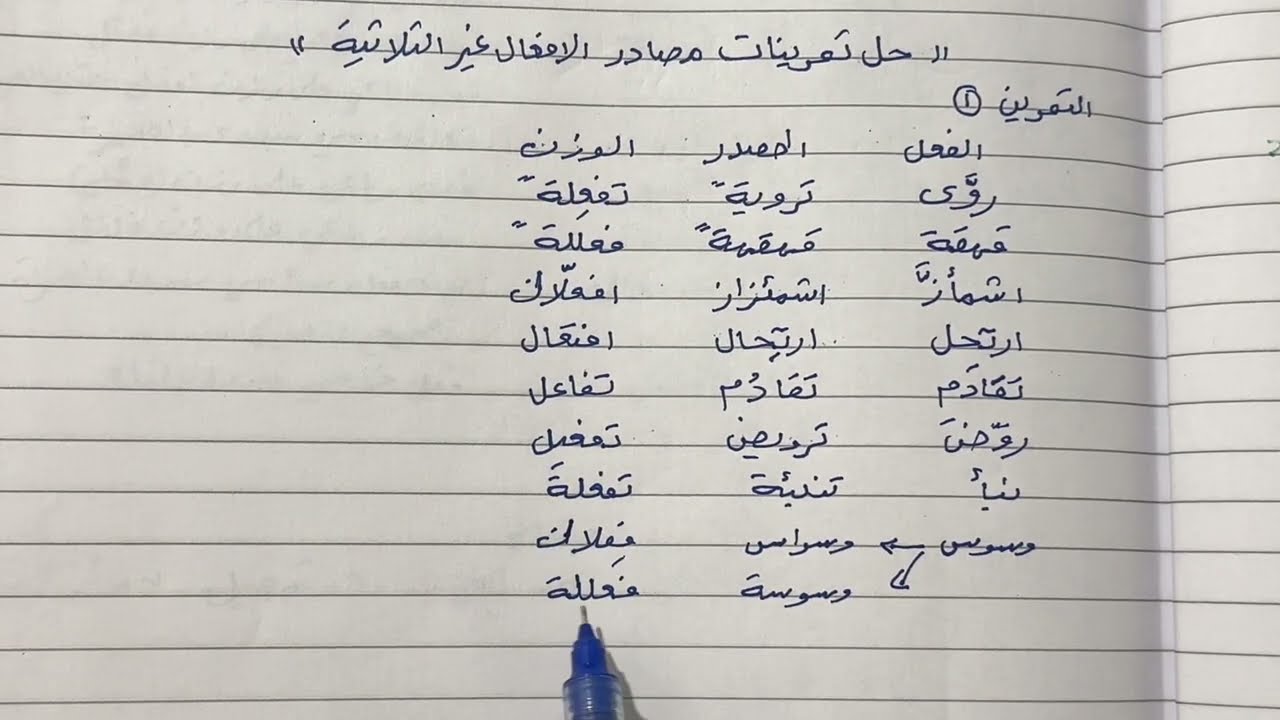 " حل تمرينات مصادر الافعال غير الثلاثية "
التمرين ①
الفعل المصدر الوزن
روَّى ترويةً تفعِلةً
قهقة قهقهةً فعللةً
اشمأزَّ اشمئزاز افعلّال
ارتحل ارتِحال افتعال
تَقَادَم تَقَادُم تفاعل
روَّضَ ترويض تفعيل
نبأ تنبئة تفعلة
وسوس وسواس فِعلال
وسوسة فَعللة